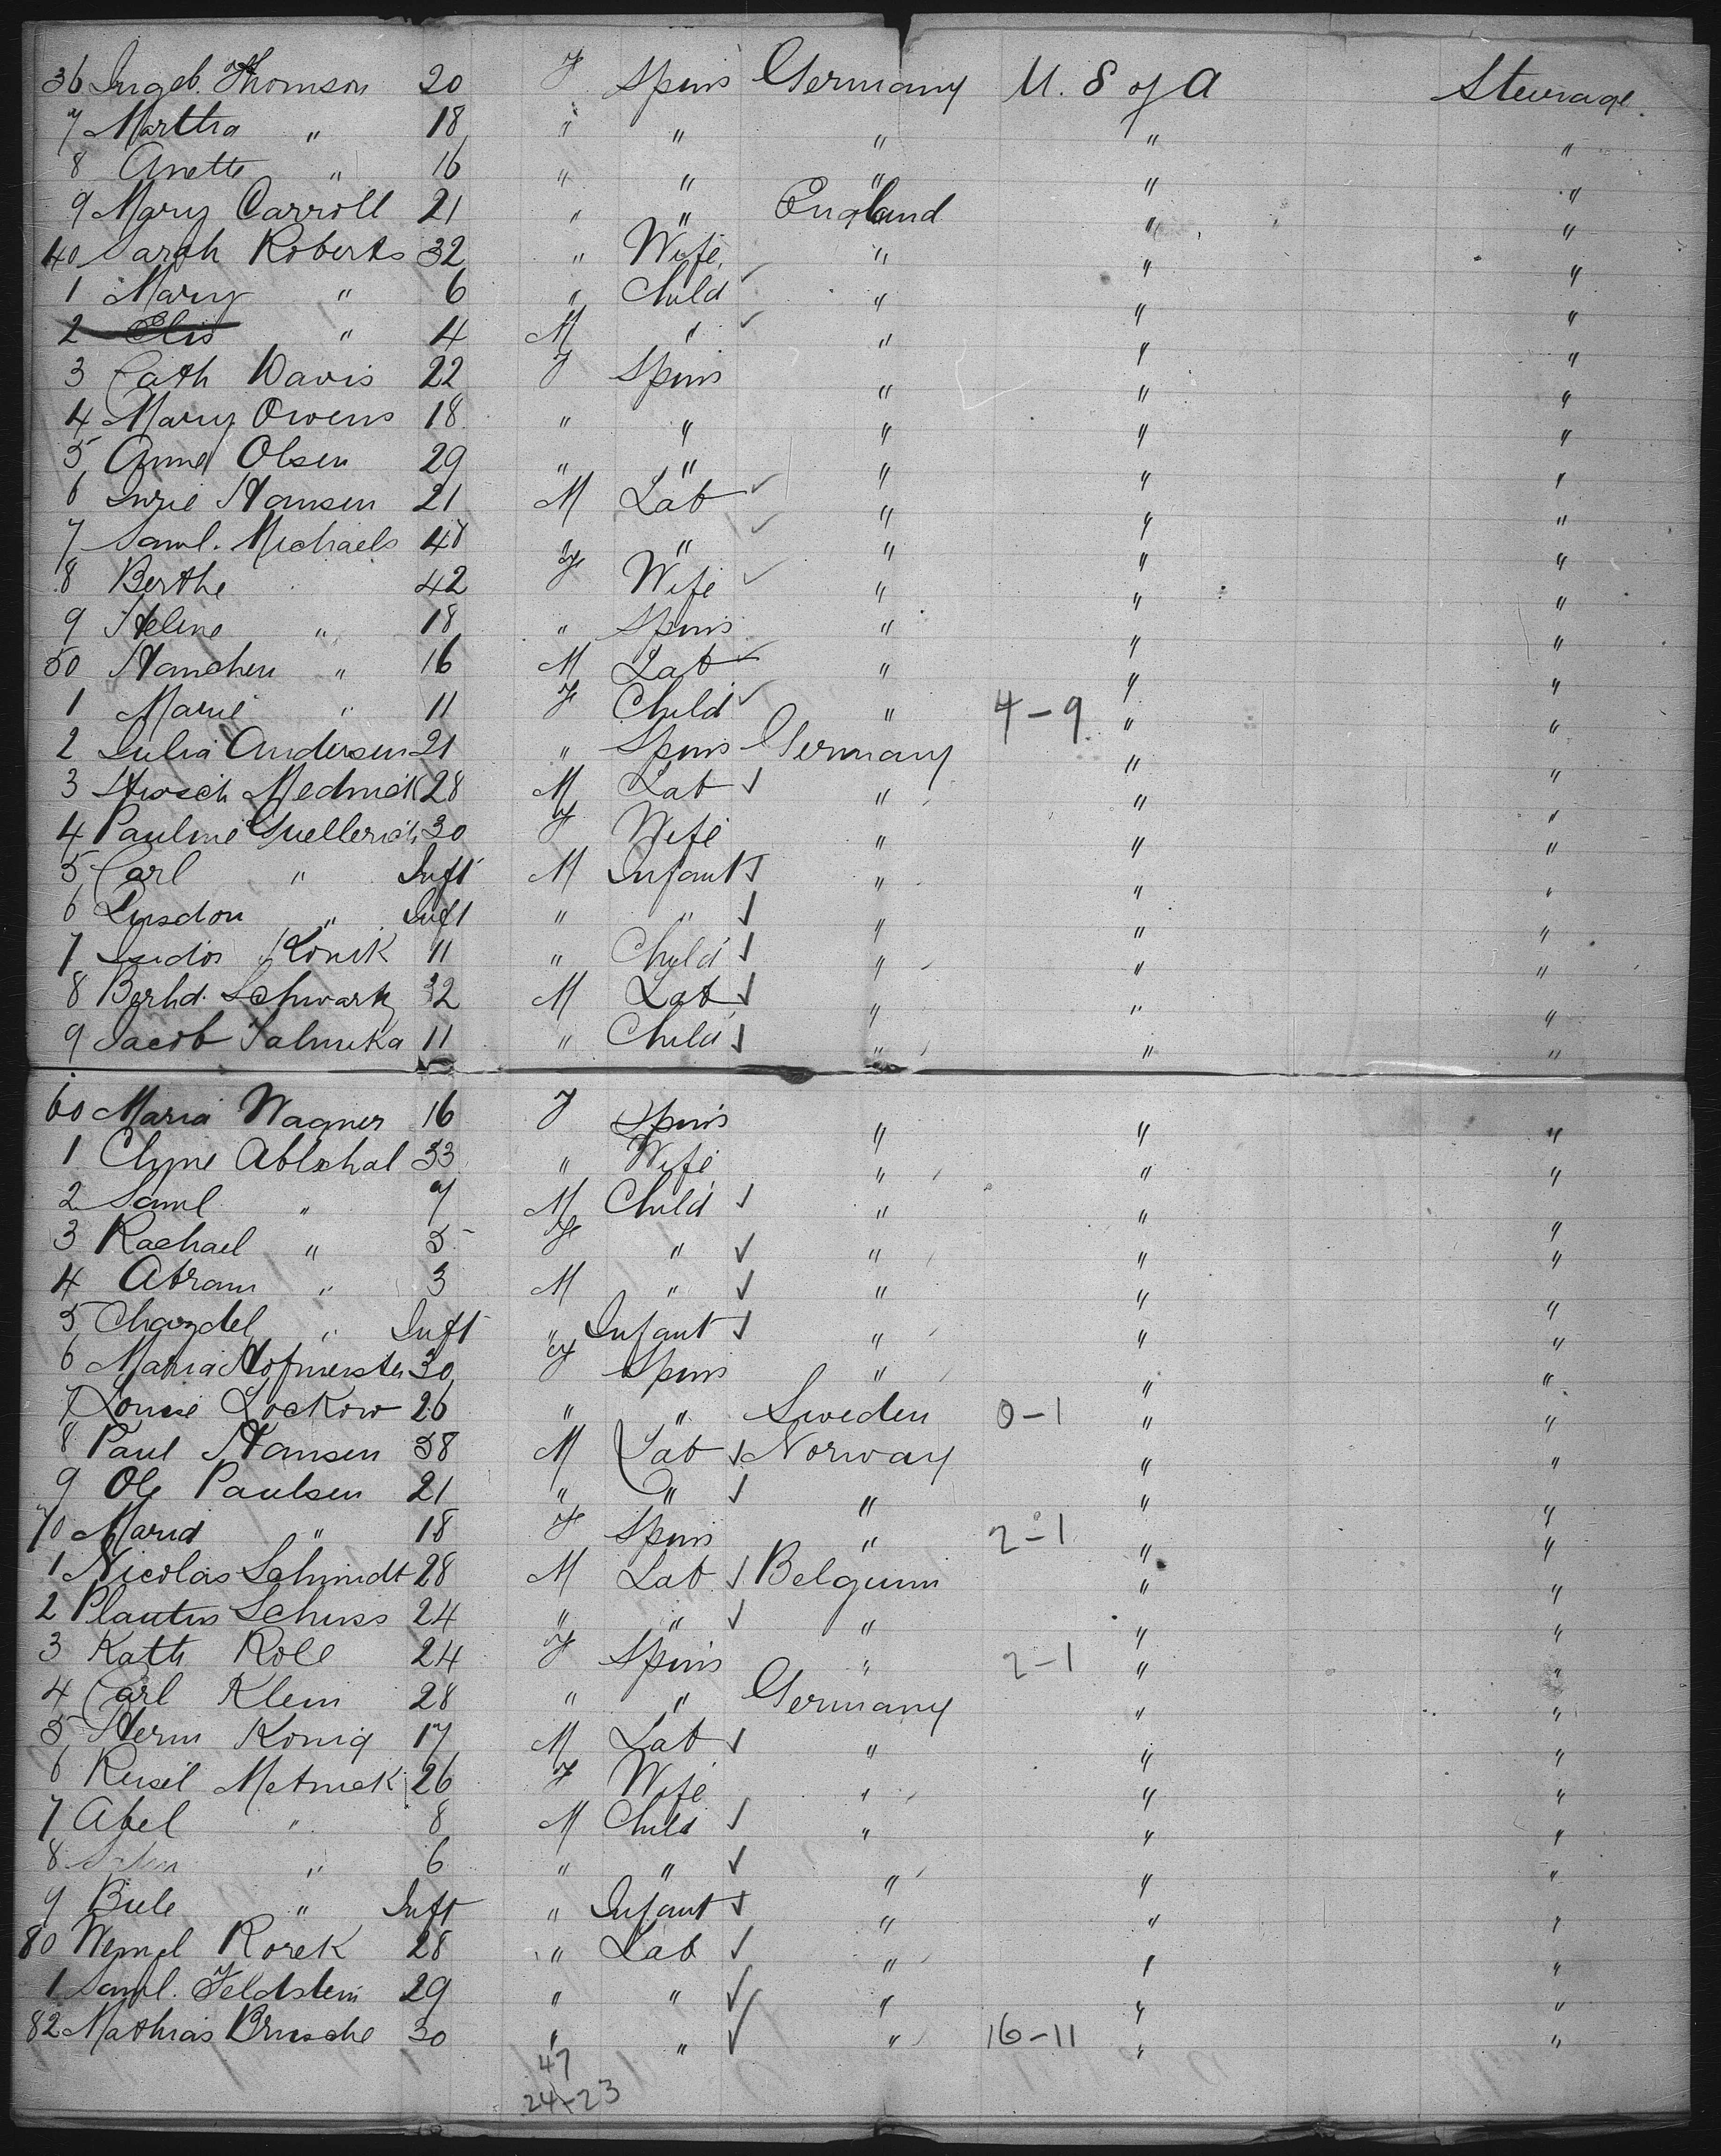 36 Ingeb. Thomson 20 F Spins Germany U. S of A Steerage
7 Martha " 18 " " " " "
8 Anette " 16 " " " " "
9 Mary Carroll 21 " " England " "
40 Sarah Roberts 32 " Wife " " "
1 Mary " 6 " Child " " "
2 Elis " 4 M " " " "
3 Cath Davis 22 F Spins " " "
4 Mary Owens 18 " " " " "
5 Anna Olsen 29 " " " " "
6 Hansen 21 M Lab " " "
7 Saml. Michaels 48 " " " " "
8 Berthe 42 F Wife " " "
9 Helene " 18 " Spins " " "
50 Hanchen " 16 M Lab " " "
1 Marie " 11 F Child " 4-9 " "
2 Julia Andersen 21 " Spins Germany " "
3 Hirsch Mednick 28 M Lab " " "
4 Pauline 30 F Wife " " "
5 Carl " Inft M Infant " " "
6 " Inft " " " " "
7 Isidor Konik 11 " Child " " "
8 Berhd. Schwartz 32 M Lab " " "
9 Jacob 11 " Child " " "
60 Maria Wagner 16 F Spins " " "
1 33 " Wife " " "
2 Saml " 7 M Child " " "
3 Rachael " 5 F " " " "
4 Abram " 3 M " " " "
5 " Inft " Infant " " "
6 Maria Hofmeister 30 F Spins " " "
7 Louise Lockow 26 " " Sweden 0-1 " "
8 Paul Hansen 38 M Lab Norway " "
9 Ole Paulsen 21 " " " " "
70 " 18 F Spins " 2-1 " "
1 Nicolas Schmidt 28 M Lab Belgium " "
2 24 " " " " "
3 Kath Roll 24 F Spins " 2-1 " "
4 Carl Klein 28 " " Germany " "
5 Herm Konig 17 M Lab " " "
6 26 F Wife " " "
7 Abel " 8 M Child " " "
8 " 6 " " " " "
9 Biele " Inft " Infant " " "
80 Rorek 28 " Lab " " "
1 Saml. Feldstein 29 " " " " "
82 Mathias 30 " " " 16-11 " "
47
24-23